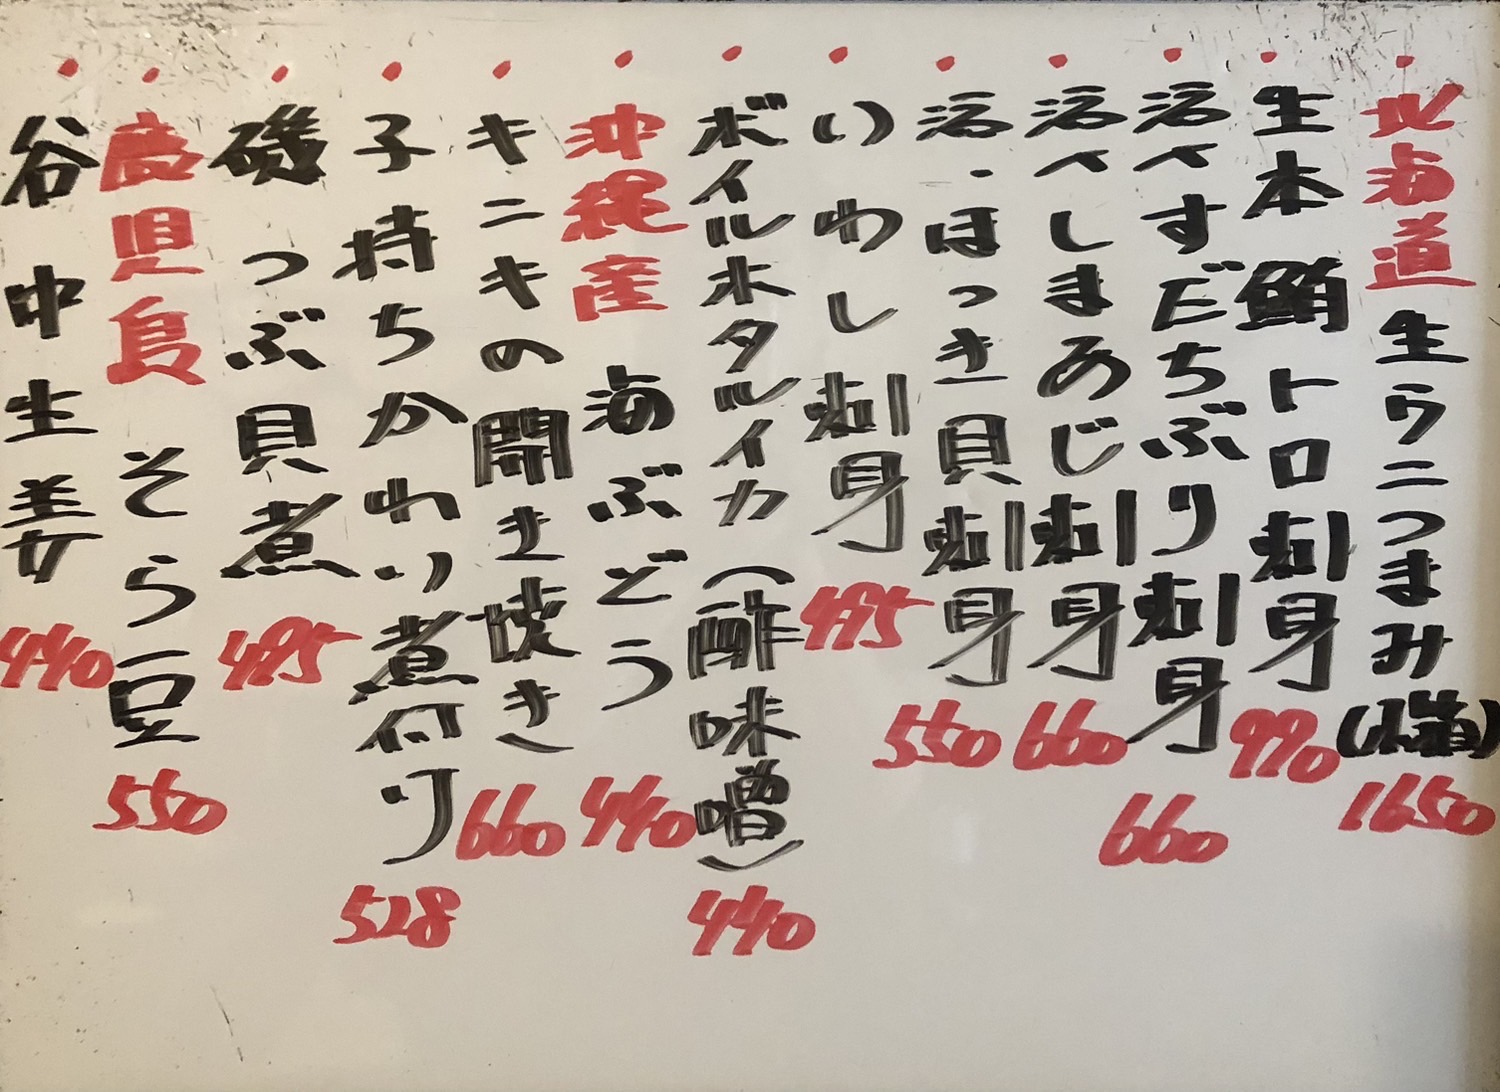 北海道生ウニつまみ(小箱)1650
生本鮪トロ刺身990
活〆すだちぶり刺身660
活〆しまあじ刺身660
活・ほっき貝刺身550
いわし刺身495
ボイルホタルイカ(酢味噌)440
沖縄産 海ぶどう440
キニキの開き焼き660
子持ちかわり煮付り528
磯つぶ貝煮495
鹿児島 そら豆550
谷中生姜440